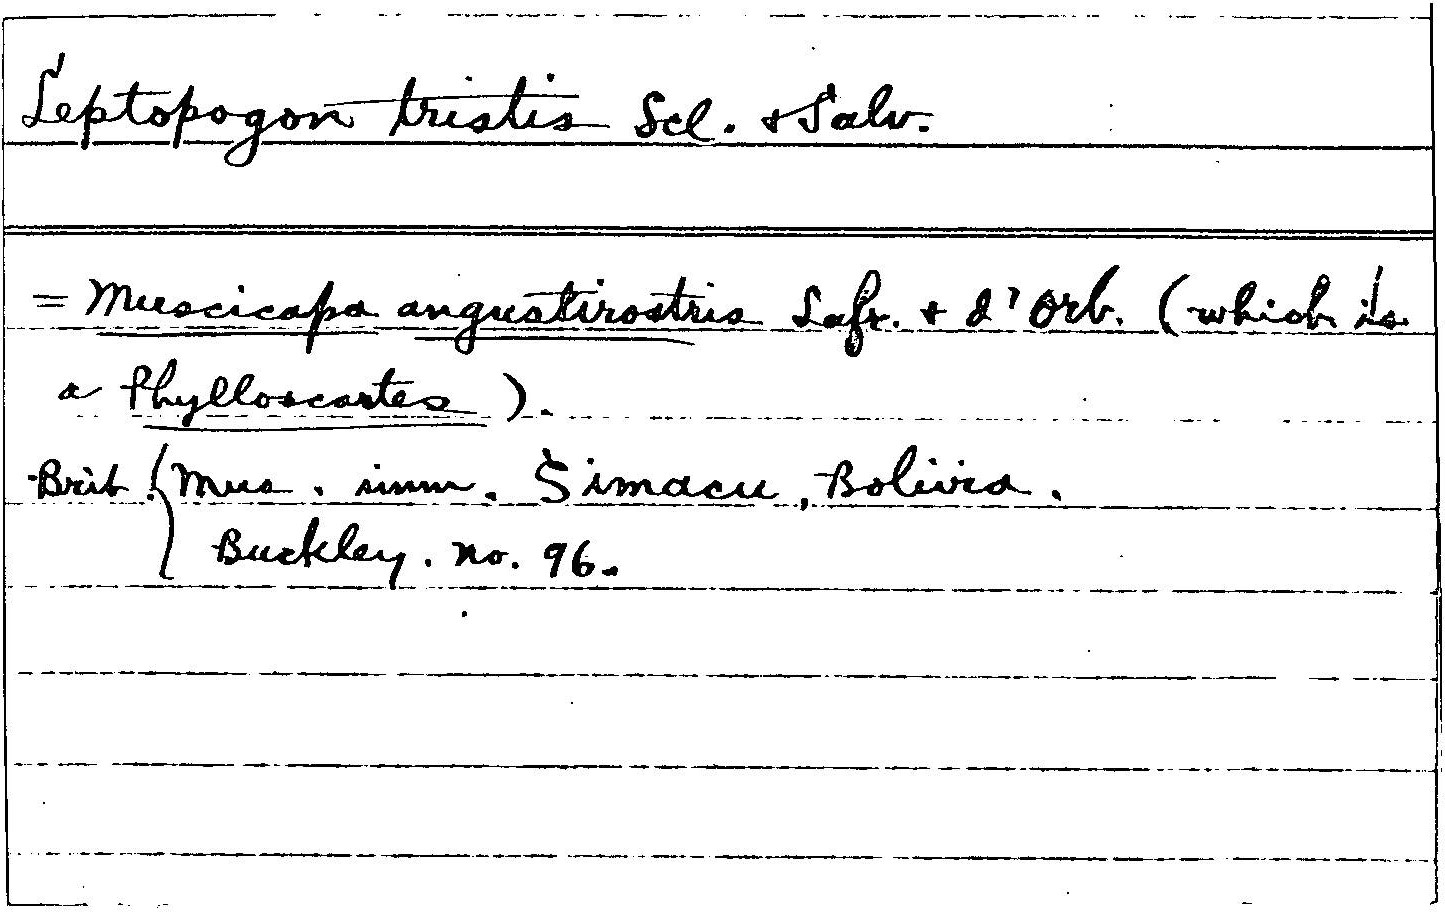 Leptopogon tristis Scl. & Salv.
= Muscicapa angustirostris Lafr. & d'Orb. (which is
a Phylloscartes).
Brit. Mus. imm. Simacu, Bolivia.
Buckley. no. 96.